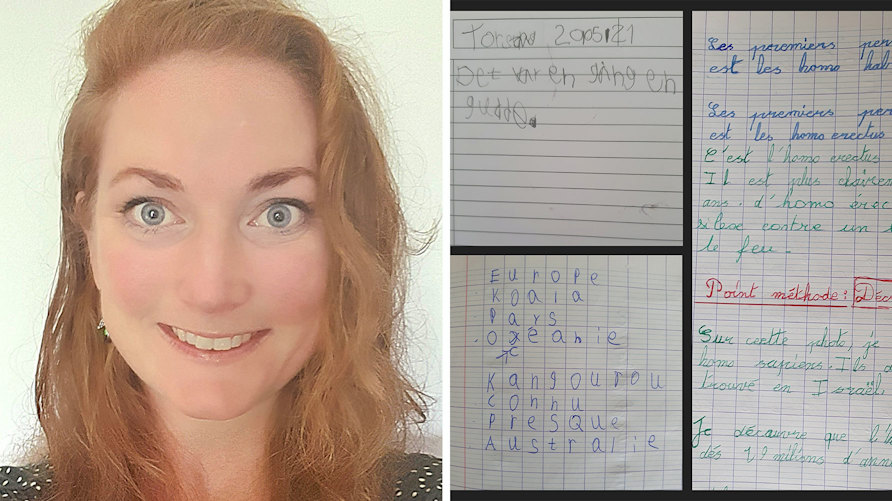 Torsdag 20/05/21
Det var en gång en
gubbe.
Europe
Koala
Pars
Oxeanie
c
Kangourou
Connu
Presque
Australie
Les premiers per
est les homo hab
Les premiers per
est les homo erectus
C'est l'homo erectus
Il est plus
ans. d'homo érec
contre un
le feu.
Point méthode: Déc
Sur cette photo, je
homo sapiens. Ils
trouvé en Israël
Je découvre que l'
dés 1,9 millions d'ann